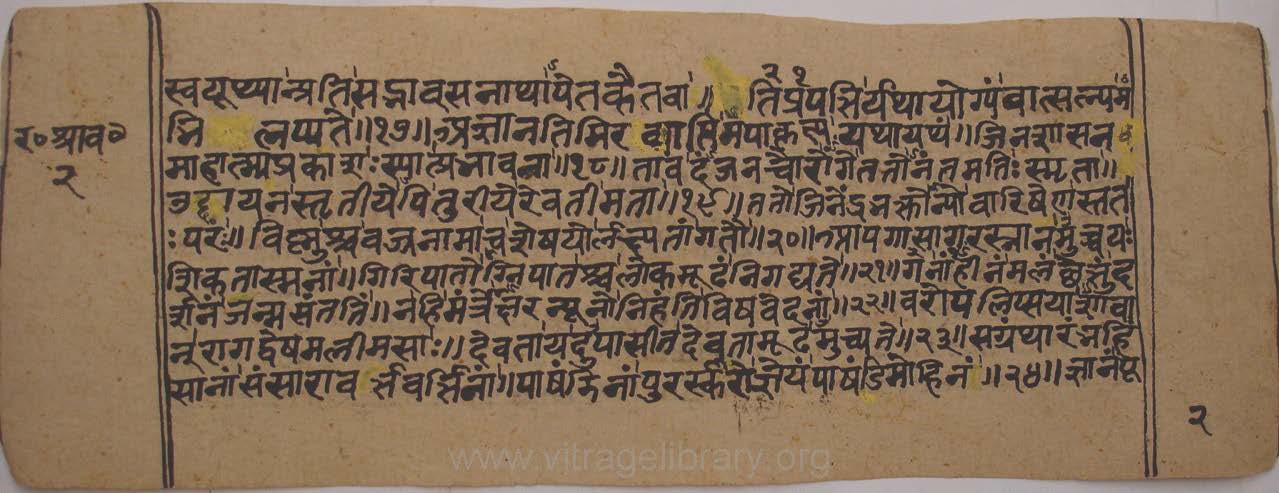 स्वयूथ्यान्प्रतिसद्भावसनाथापेतकैतवा॥ तिप्रपत्तिर्यथायोग्यंवात्सल्यम
भिलप्यते॥१७॥अज्ञानतिमिरव्याप्तिमपाकृत्ययथायथं॥जिनशासन
माहात्म्यप्रकाशःस्यात्प्रभावना॥१८॥तावदंजनचौरोंगेततोनंतमतिःस्मृता॥
उद्दायनस्तृतीयेपितुरीयेरेवतीमता॥१९॥ततोजिनेंद्रभक्तोन्योवारिषेणस्तत
ःपरः॥विष्णुश्चवज्रनामाचशेषयोर्लक्ष्यतांगतौ॥२०॥आपगासागरस्नानमुच्चयः
शिकतास्मनां॥गिरिपातोग्निपातश्चलोकमूढंनिगद्यते॥२१॥
र्शनंजन्मसंततिं॥नहिमंत्रोक्षरन्यूनोनिहंतिविषवेदनां॥२२॥वरोपलिप्सयाशावा
न्रागद्वेषमलीमसाः॥देवतायदुपासीतदेवतामूढमुच्यते॥२३॥सग्रंथारंभहिं
सानांसंसारावर्त्तवर्त्तिनां॥पाषंडिनांपुरस्कारोज्ञेयंपाषंडिमोहिनं॥२४॥ज्ञानंपू
र॰श्राव॰
२
२
www.vitragelibrary.org